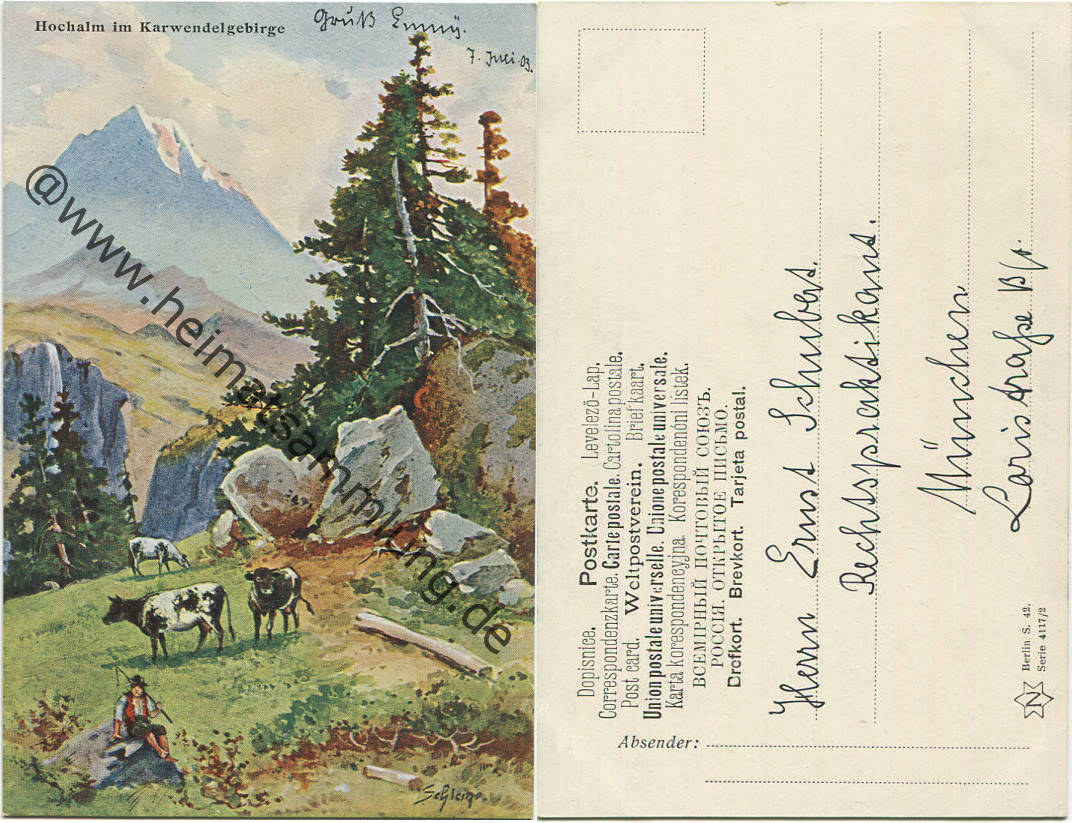 Hochalm im Karwendelgebirge
Gruß Emmy.
7. Juli 03.
@www.heimatsammlung.de
Dopisnice. Postkarte. Levelező-Lap.
Correspondenzkarte. Carte postale. Cartolina postale.
Post card. Weltpostverein. Briefkaart.
Union postale universelle. Unione postale universale.
Karta korespondencyjna. Korespondenční lístek.
ВСЕМІРНЫЙ ПОЧТОВЫЙ СОЮЗЪ.
РОССІЯ. ОТКРЫТОЕ ПИСЬМО.
Brefkort. Brevkort. Tarjeta postal.
Absender:
Herrn Ernst Schubert.
Rechtspraktikant.
München
Berlin S. 42.
Serie 4117/2
N